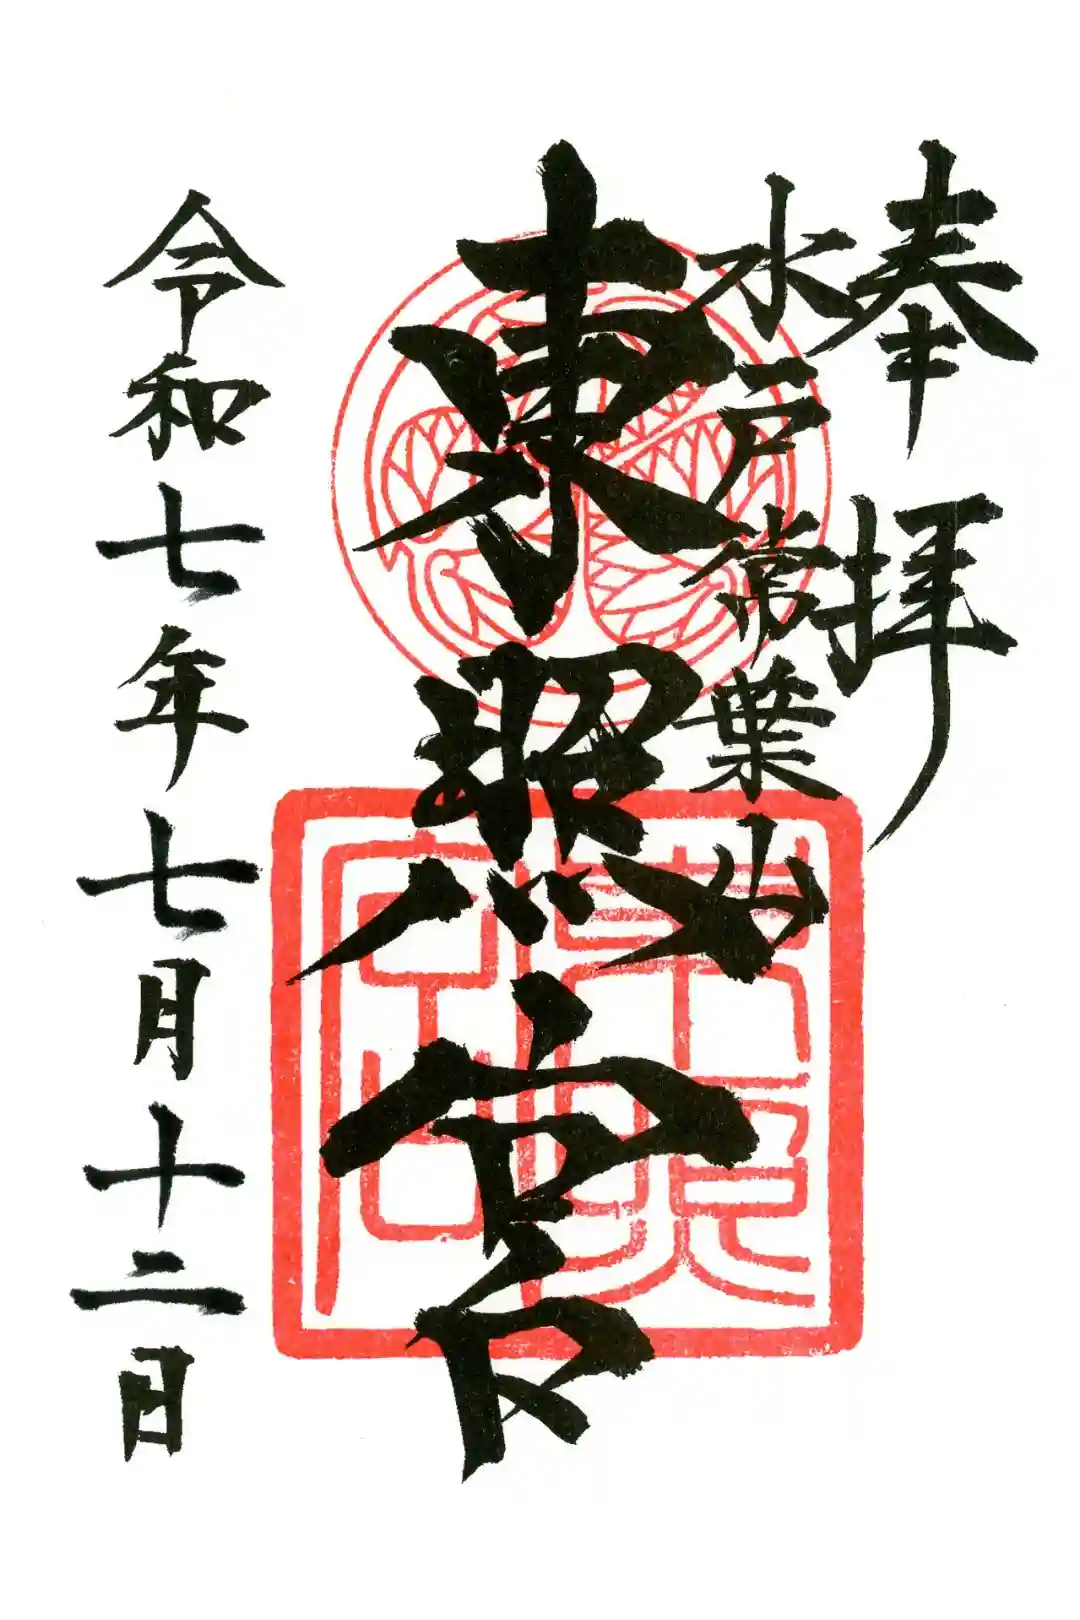 奉拝
水戸常葉山
東照宮
令和七年七月十二日
東照宮印